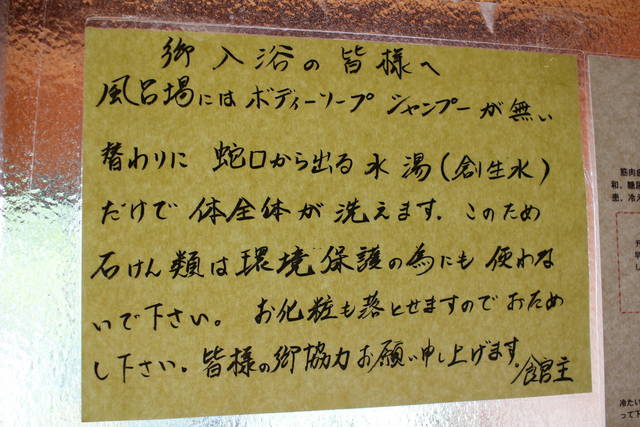 御入浴の皆様へ
風呂場にはボディーソープ シャンプーが無い
替わりに 蛇口から出る水 湯(創生水)
だけで 体全体が 洗えます. このため
石けん類は環境保護の為にも 使わな
いで下さい。 お化粧も落とせますのでおため
し下さい. 皆様の御協力お願い申し上げます.
館主
筋肉
和、
患、冷
冷たい
って下